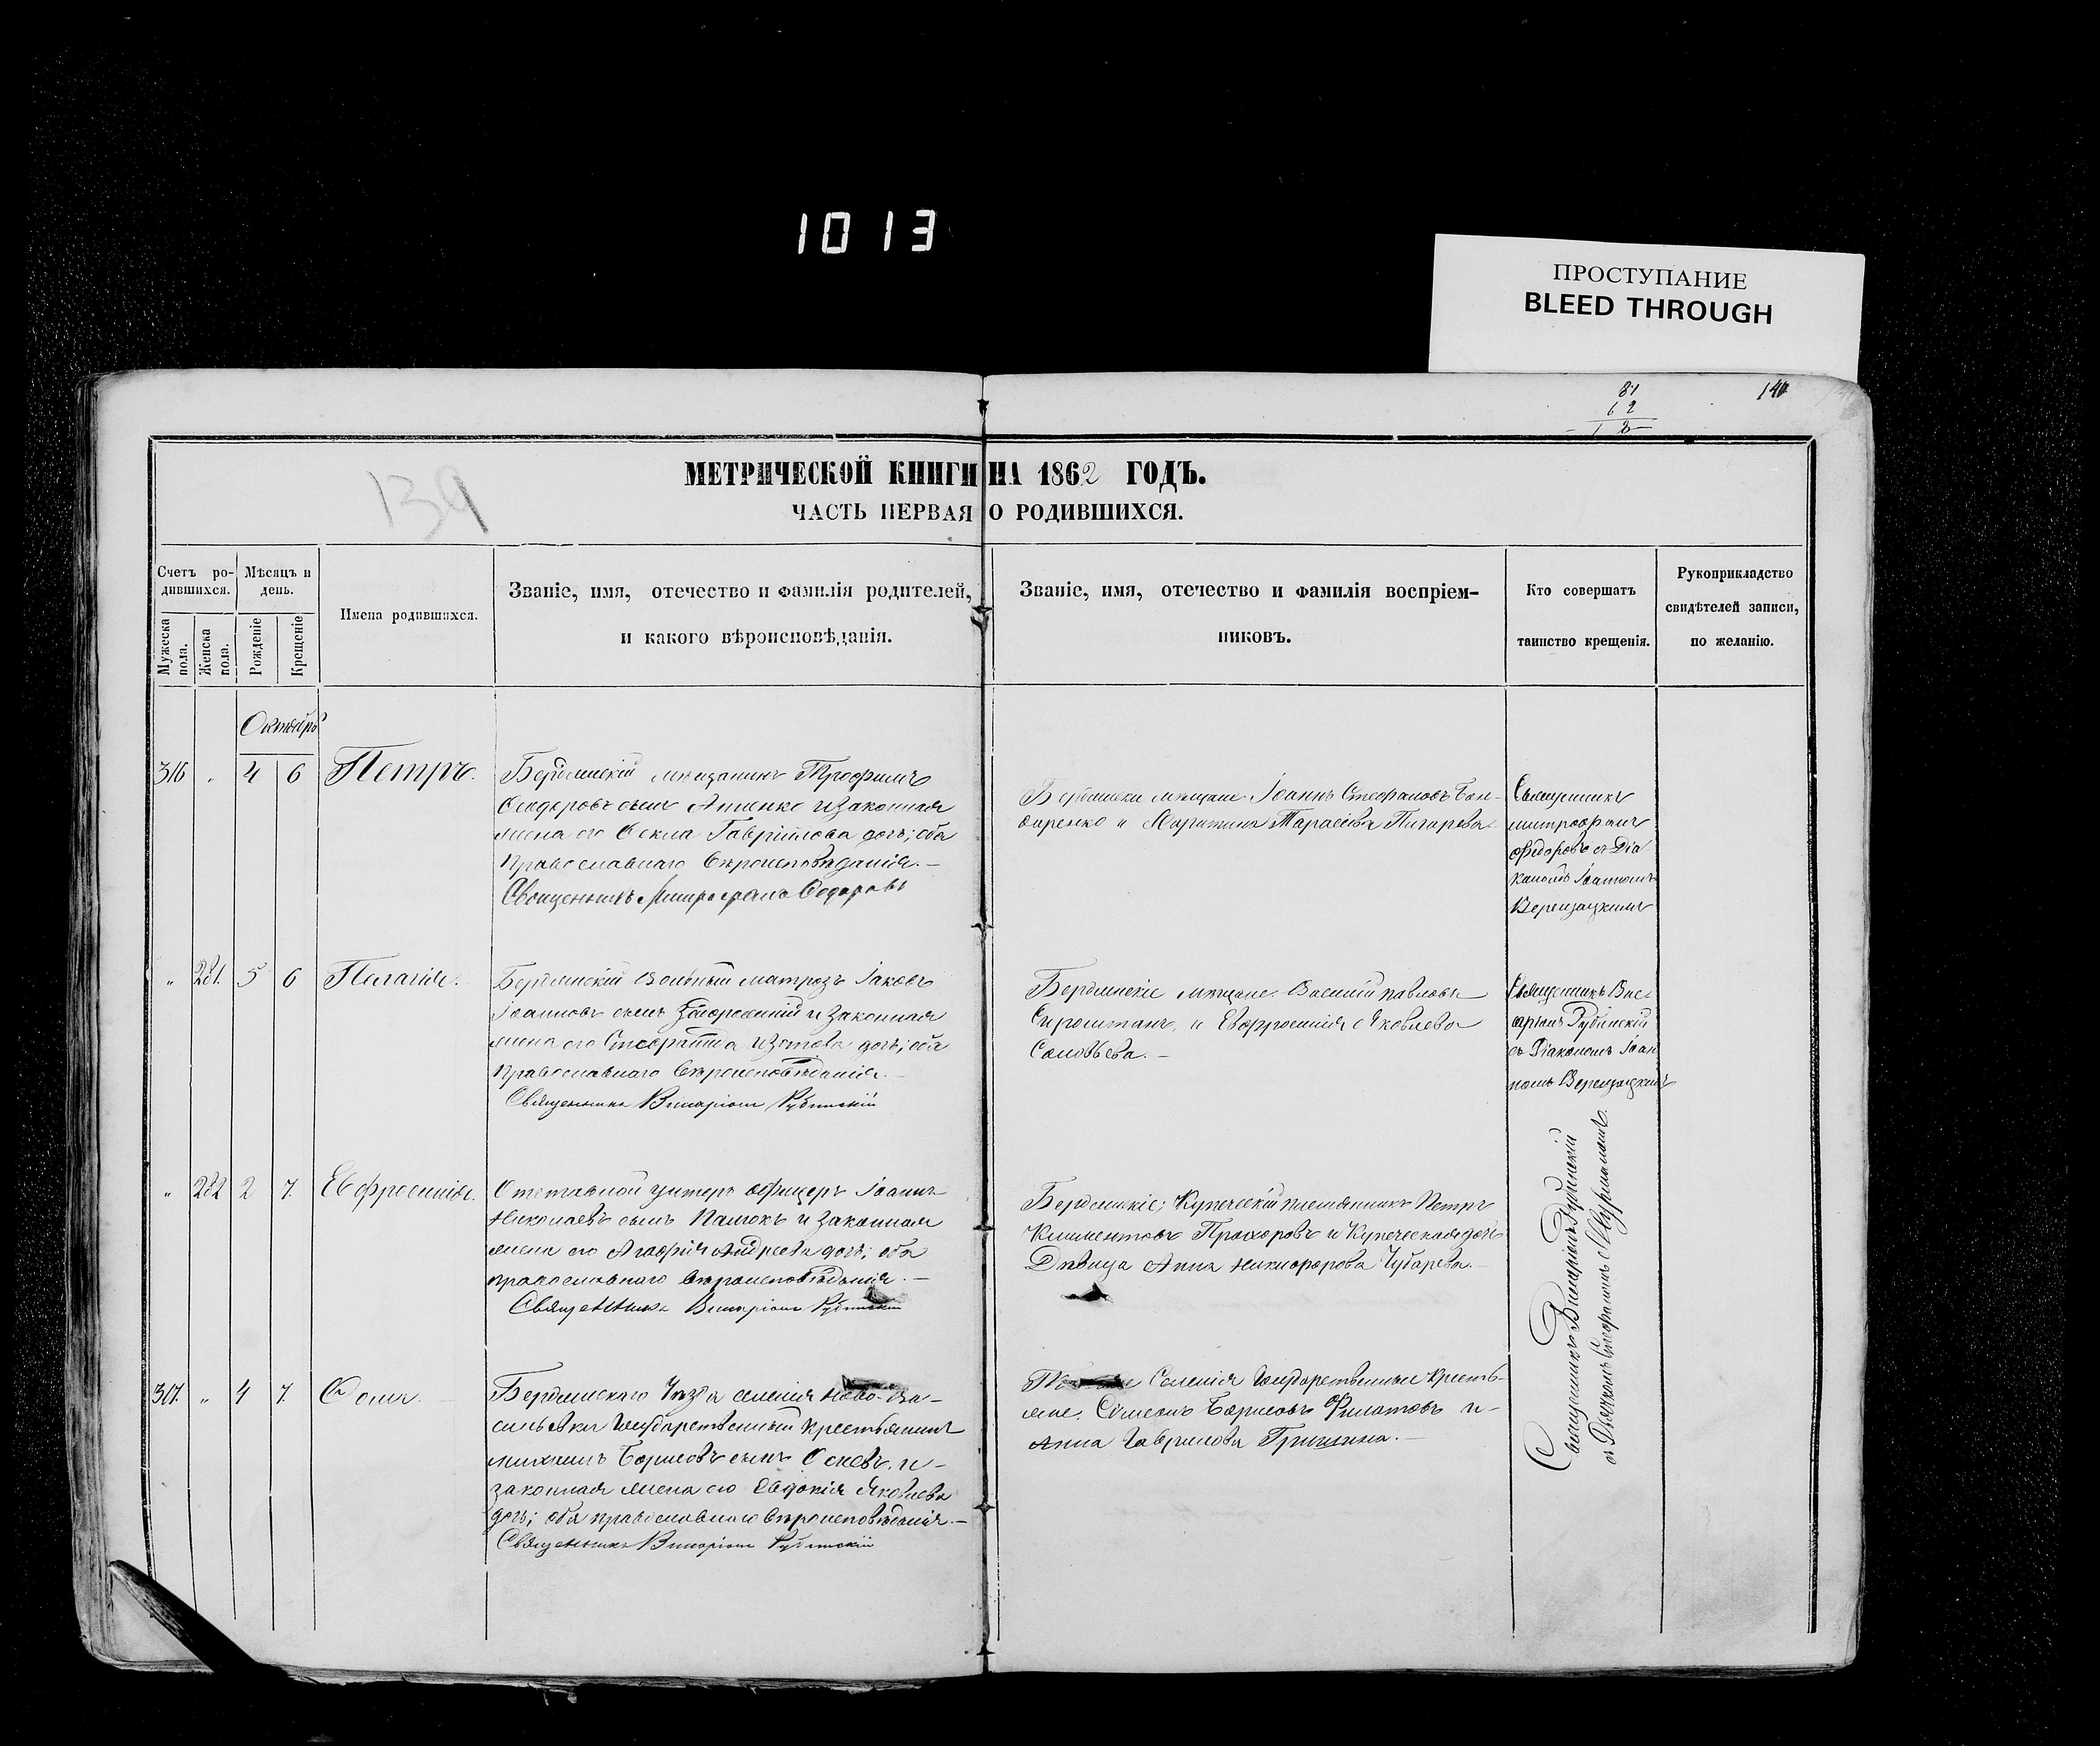 1013
ПРОСТУПАНИЕ
BLEED THROUGH
81
62
140
139
МЕТРИЧЕСКОЙ КНИГИ НА 1862 ГОДЪ.
ЧАСТЬ ПЕРВАЯ О РОДИВШИХСЯ.
Счетъ родившихся.
Мужеска пола.
Женска пола.
Мѣсяцъ и день.
Рожденіе
Крещеніе
Имена родившихся.
Званіе, имя, отечество и фамилія родителей,
и какого вѣроисповѣданія.
Званіе, имя, отечество и фамилія воспріем-
никовъ.
Кто совершатъ
таинство крещенія.
Рукоприкладство
свидѣтелей записи,
по желанію.
Октябрь
316 „ 4 6 Петръ.
Бердянскій мѣщанинъ Трофимъ
Ѳеодоровъ сынъ и законная
жена его Ѳекла Гавріилова дочь; оба
православнаго вѣроисповѣданія.—
Священникъ Митрофанъ Ѳедоровъ
Бердянски мѣщане Іоаннъ Стефановъ Бон-
даренко и Тарасіева
Священникъ
митрофанъ
Ѳедоровъ съ Діа
кономъ Іоанномъ
Верещацкимъ
„ 281. 5 6 Пелагія.
Бердянскій вольный матрозъ Іаковъ
Іоанновъ сынъ и законная
жена его дочь; оба
православнаго вѣроисповѣданія.—
Священникъ Виссаріонъ Рубинскій
Бердянскіе мѣщане Василій Павловъ
и Евфросинія Яковлева
Соловьева.—
Священникъ Вис-
аріонъ Рубинскій
съ Діакономъ Іоан
номъ Верещацкимъ
„ 282 2 7. Евфросинія.
Отставной унтеръ офицеръ Іоаннъ
Николаевъ сынъ и законная
жена его Агафія Андреева дочь; оба
православнаго вѣроисповѣданія.—
Священникъ Виссаріонъ Рубинскій
Бердянскіе; Купеческій племянникъ Петръ
Климентовъ Прохоровъ и Купеческая дочь
Дѣвица Анна Никифорова Чубарева.—
317. „ 4 7. Ѳома.
Бердянскаго Уѣзда селенія Ново-Ва-
сильевки Государственный крестьянинъ
Борисовъ сынъ и-
законная жена его Евдокія Яковлева
дочь; оба православнаго вѣроисповѣданія.—
Священникъ Виссаріонъ Рубинскій
Селенія Государственные Кресть-
яне. Симеонъ Борисовъ Филатовъ и-
Анна Гаврилова Гришина.—
Священникъ Виссаріонъ Рубинскій